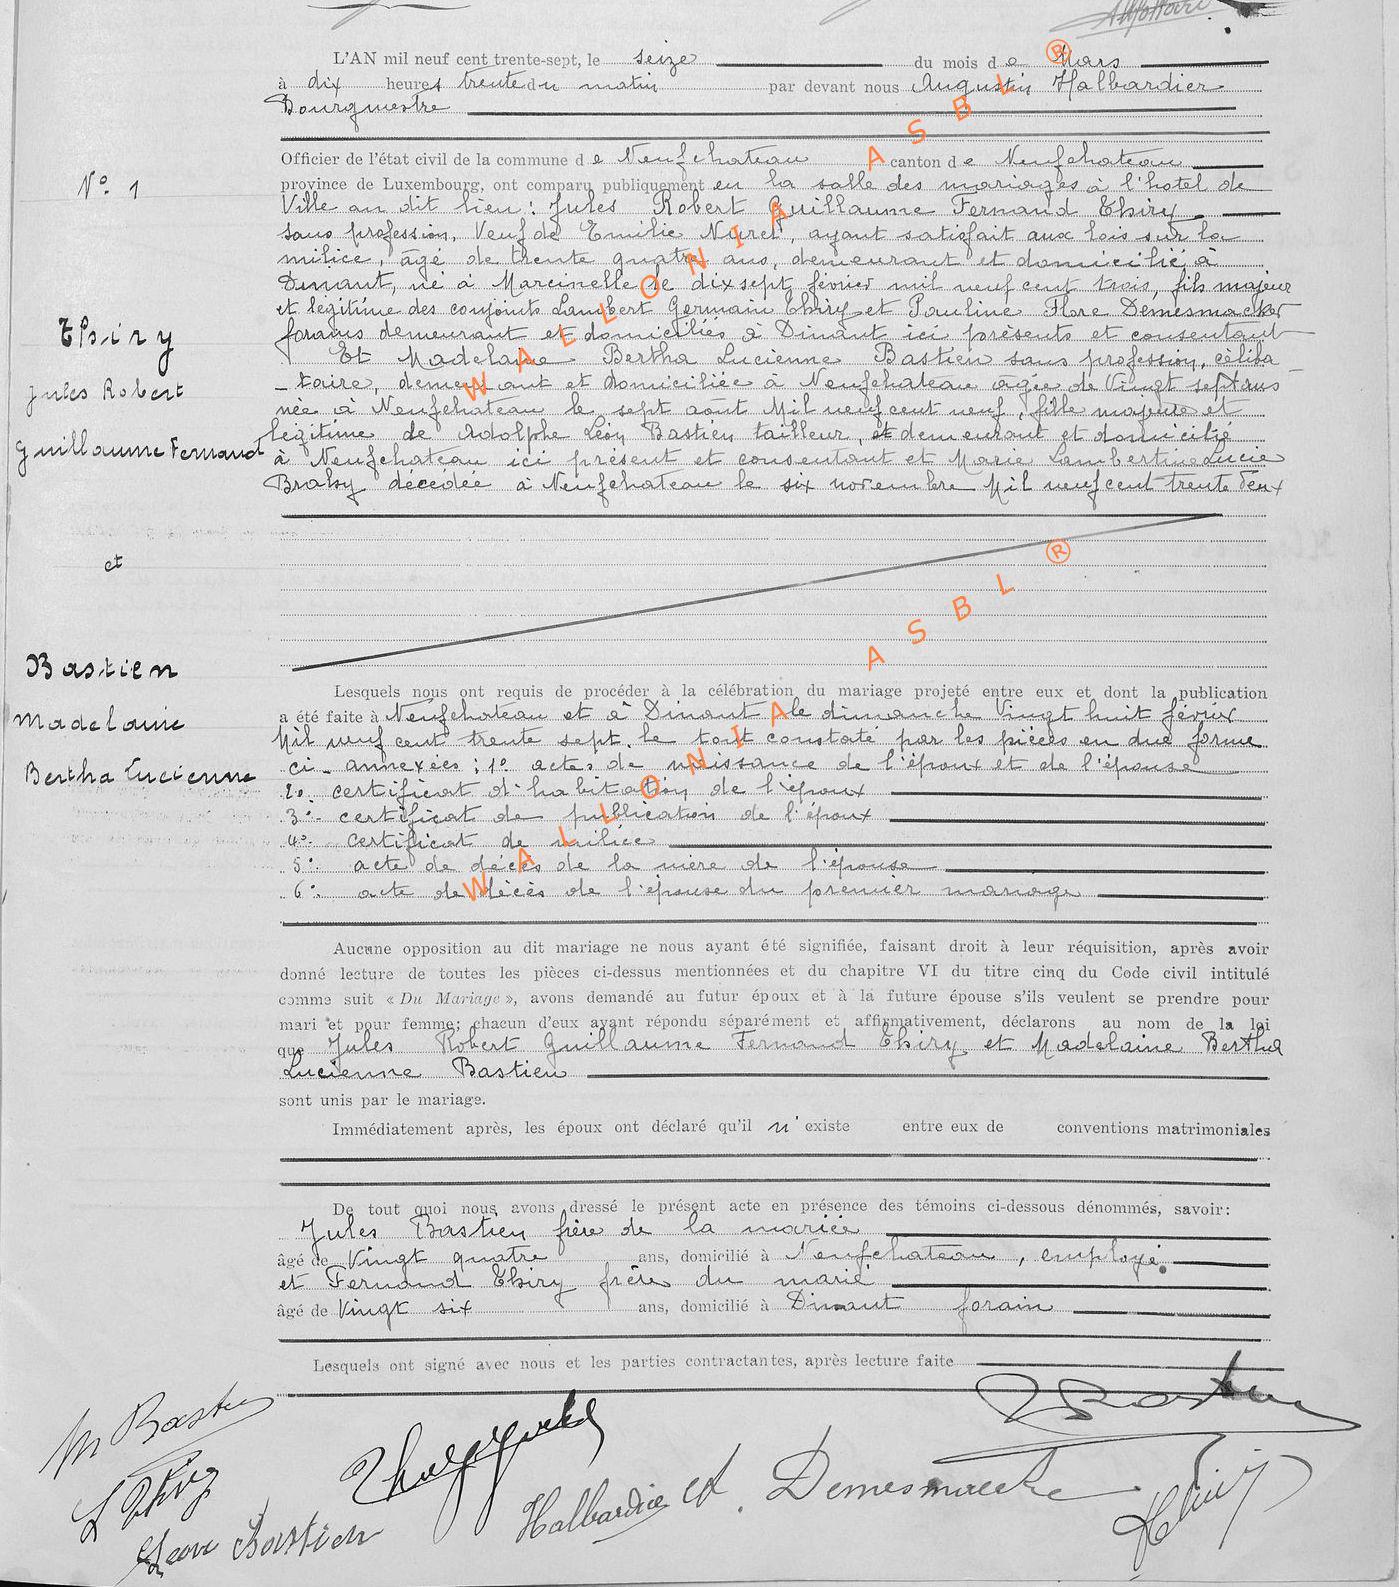 L'AN mil neuf cent trente-sept, le seize du mois de Mars
à dix heures trente du matin par devant nous Augustin Halbardier
Bourgmestre
Officier de l'état civil de la commune de Neufchateau canton de Neufchateau
N° 1
province de Luxembourg, ont comparu publiquement en la salle des mariages à l'hotel de
Ville au dit lieu : Jules Robert Guillaume Fernand Thiry
sans profession, Veuf de Emilie , ayant satisfait aux lois sur la
milice, âgé de trente quatre ans, demeurant et domicilié à
Dinant, né à Marcinelle le dix sept février mil neuf cent trois, fils majeur
et légitime des conjoints Lambert Germain Thiry et Pauline Flore Demesmacker
forains demeurant et domiciliés à Dinant ici présents et consentant
Et Madelaine Bertha Lucienne Bastien sans profession, céliba
- taire, demeurant et domiciliée à Neufchateau âgée de Vingt sept ans
née à Neufchateau le sept août Mil neuf cent neuf, fille majeure et
légitime de Adolphe Léon Bastien tailleur, et demeurant et domicilié
à Neufchateau ici présent et consentant et Marie Lambertine Lucie
décédée à Neufchateau le six novembre Mil neuf cent trente deux
Thiry
Jules Robert
Guillaume Fernand
et
Bastien
Madelaine
Bertha Lucienne
Lesquels nous ont requis de procéder à la célébration du mariage projeté entre eux et dont la publication
a été faite à Neufchateau et à Dinant le dimanche Vingt huit février
Mil neuf cent trente sept. le tout constaté par les pièces en due forme
ci-annexées : 1° actes de naissance de l'époux et de l'épouse
2° certificat d'habitation de l'époux
3° certificat de publication de l'époux
4° certificat de milice
5° acte de décès de la mère de l'épouse
6° acte de décès de l'épouse du premier mariage
Aucune opposition au dit mariage ne nous ayant été signifiée, faisant droit à leur réquisition, après avoir
donné lecture de toutes les pièces ci-dessus mentionnées et du chapitre VI du titre cinq du Code civil intitulé
comme suit « Du Mariage », avons demandé au futur époux et à la future épouse s'ils veulent se prendre pour
mari et pour femme; chacun d'eux ayant répondu séparément et affirmativement, déclarons au nom de la loi
que Jules Robert Guillaume Fernand Thiry et Madelaine Bertha
Lucienne Bastien
sont unis par le mariage.
Immédiatement après, les époux ont déclaré qu'il n'existe entre eux de conventions matrimoniales
De tout quoi nous avons dressé le présent acte en présence des témoins ci-dessous dénommés, savoir:
Jules Bastien frère de la mariée
âgé de Vingt quatre ans, domicilié à Neufchateau, employé
et Fernand Thiry frère du marié
âgé de Vingt six ans, domicilié à Dinant forain
Lesquels ont signé avec nous et les parties contractantes, après lecture faite
M Bastien
J Bastien
L Thiry
Leon Bastien
Halbardier
Demesmacker
WALLONIA ASBL ®
WALLONIA ASBL ®